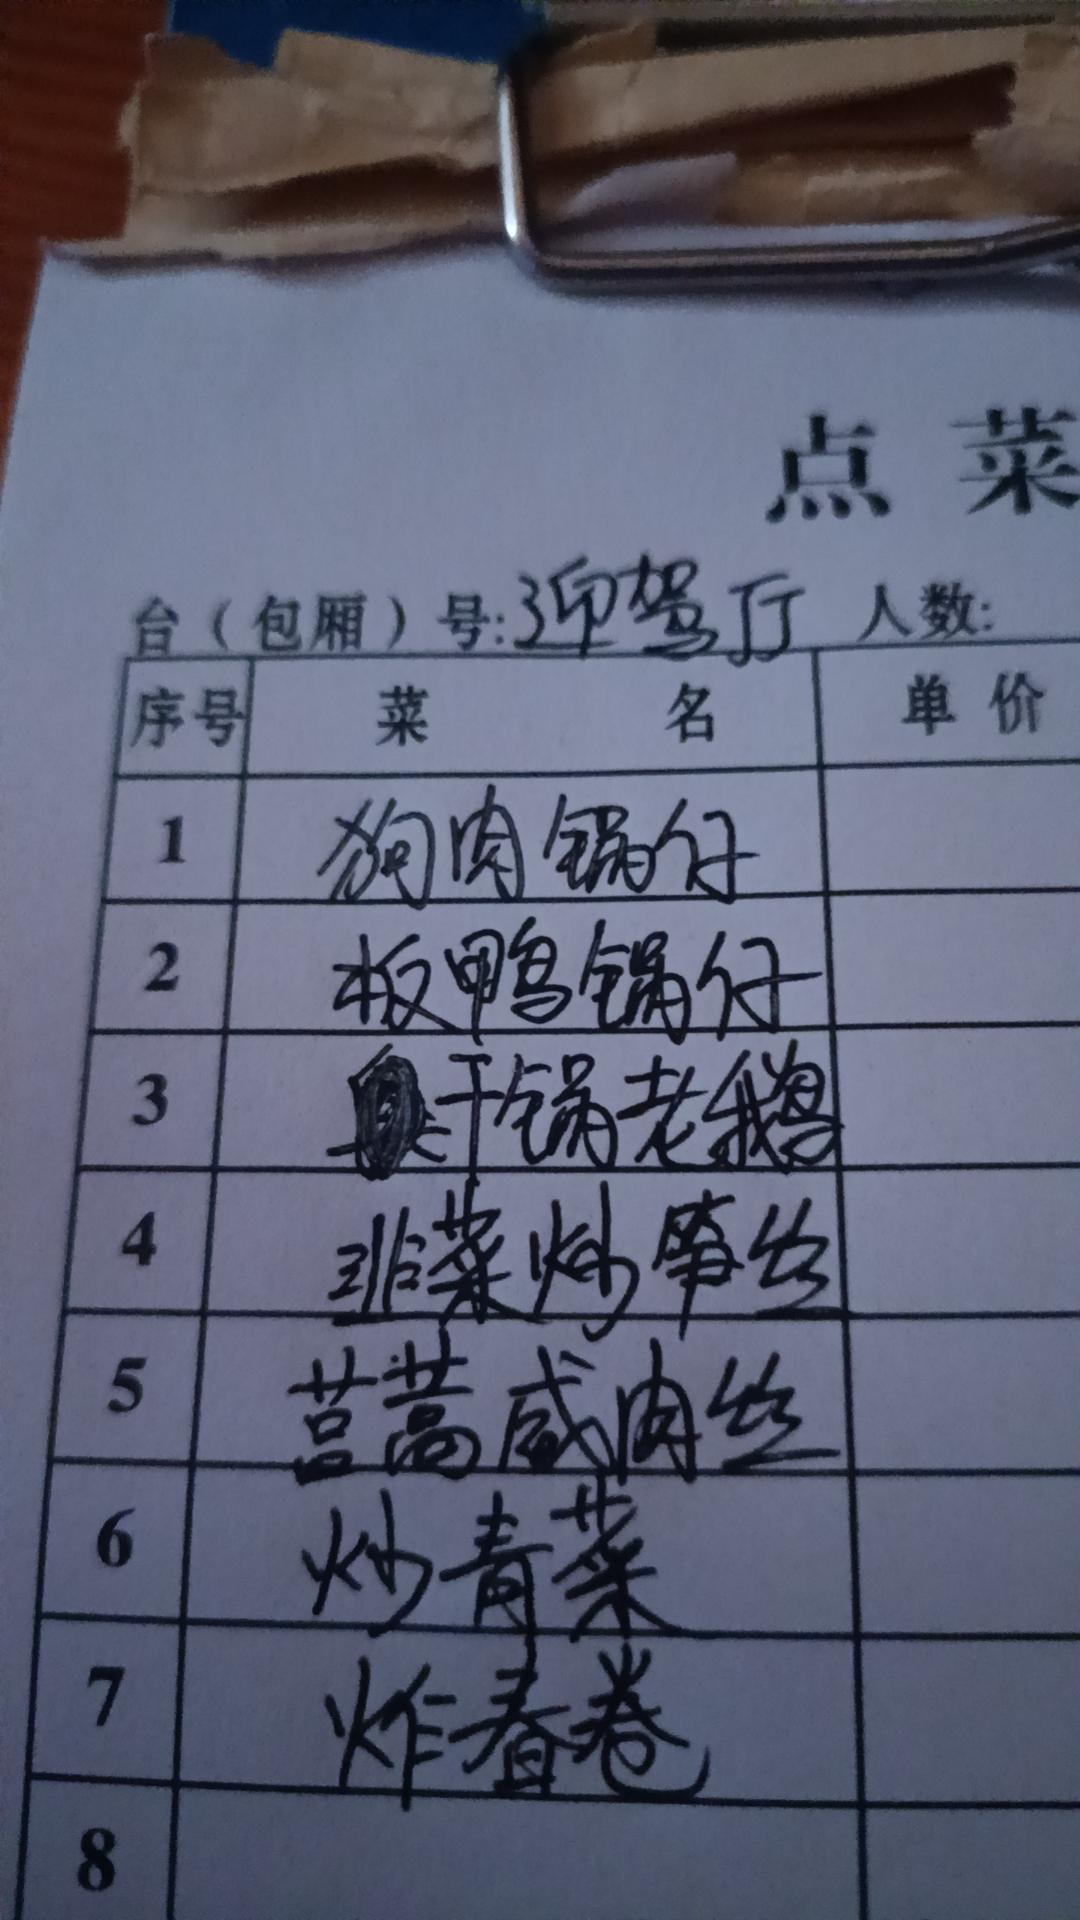 点菜
台（包厢）号:迎驾厅 人数:
序号 菜名 单价
1 狗肉锅仔
2 板鸭锅仔
3 干锅老鹅
4 韭菜炒笋丝
5 茼蒿咸肉丝
6 炒青菜
7 炸春卷
8